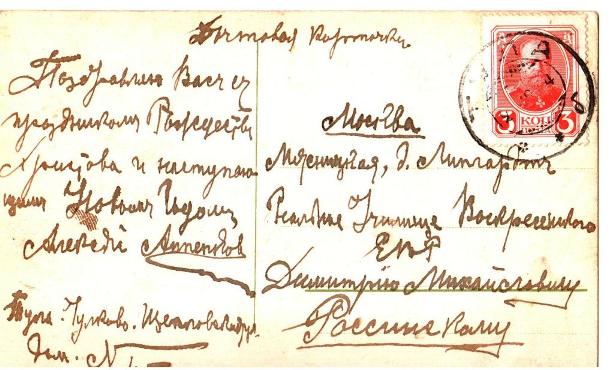 Почтовая карточка
Поздравляю Васъ съ
праздникомъ Рождества
Христова и наступаю-
щимъ Новымъ Годомъ
Алексѣй
Тула. Чулково.
Дом. №
3 КОП 3
Москва
Мясницкая, д.
Реальное Училище Воскресенского
ЕВР
Димитрію Михайловичу
Россинскому